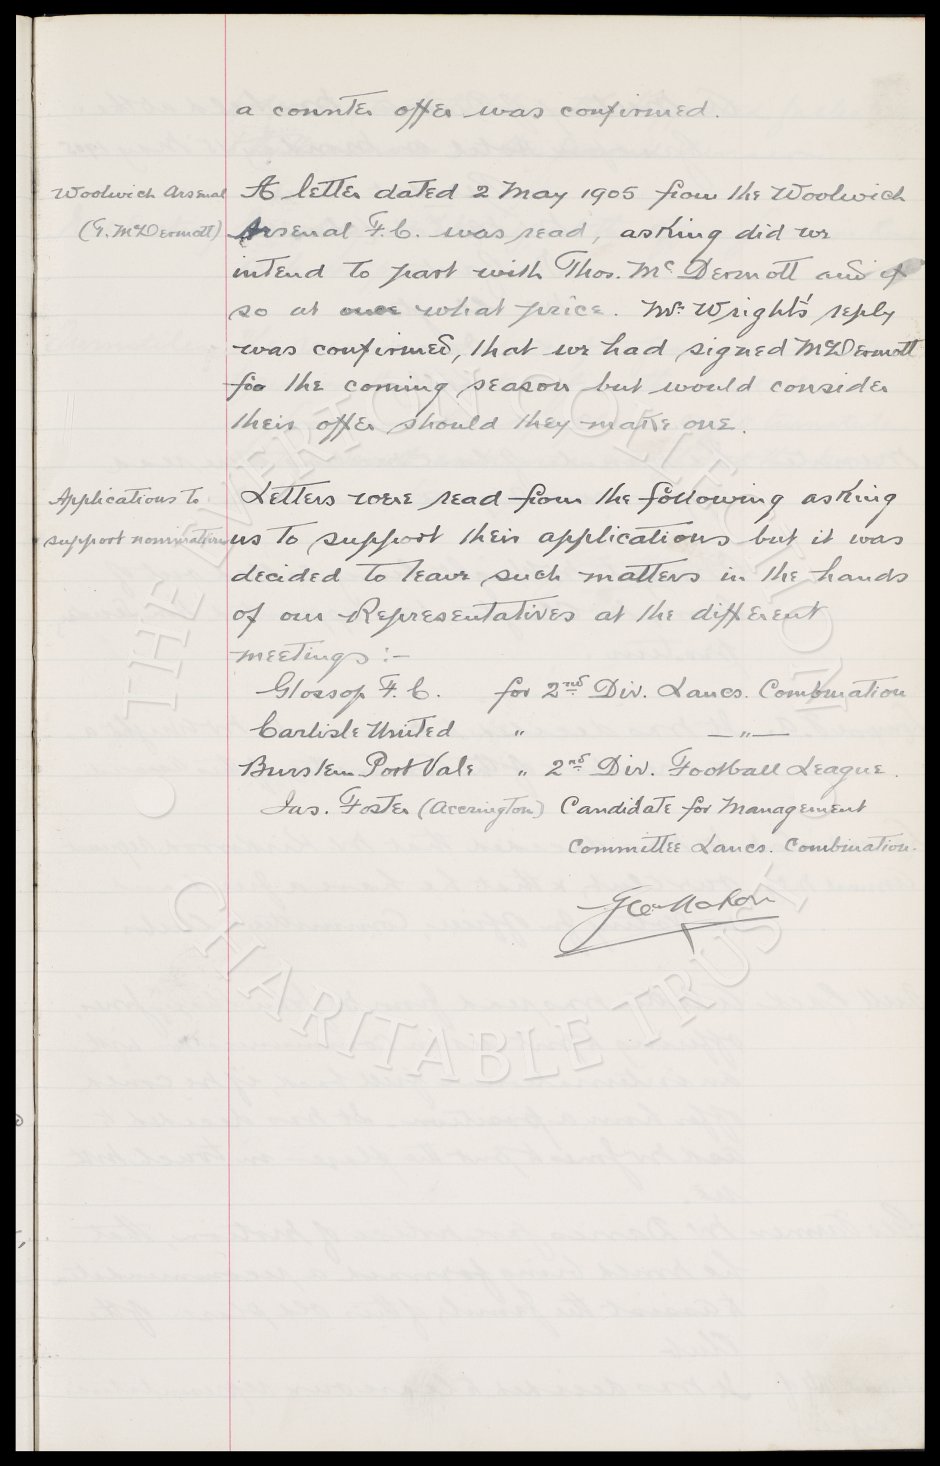 a counter offer was confirmed.
Woolwich Arsenal
(T. McDermott)
A letter dated 2 May 1905 from the Woolwich
Arsenal F.C. was read, asking did we
intend to part with Thos. Mc Dermott and if
so at once what price. Mr. Wright's reply
was confirmed, that we had signed McDermott
for the coming season but would consider
their offer should they make one.
Applications to
support nominations
Letters were read from the following asking
us to support their applications but it was
decided to leave such matters in the hands
of our Representatives at the different
meetings :-
Glossop F.C. for 2nd Div. Lancs. Combination
Carlisle United " —"—
Burslem Port Vale " 2nd Div. Football League.
Jas. Foster (Accrington) Candidate for Management
Committee Lancs. Combination.
Geo Mahon
THE EVERTON COLLECTION
CHARITABLE TRUST